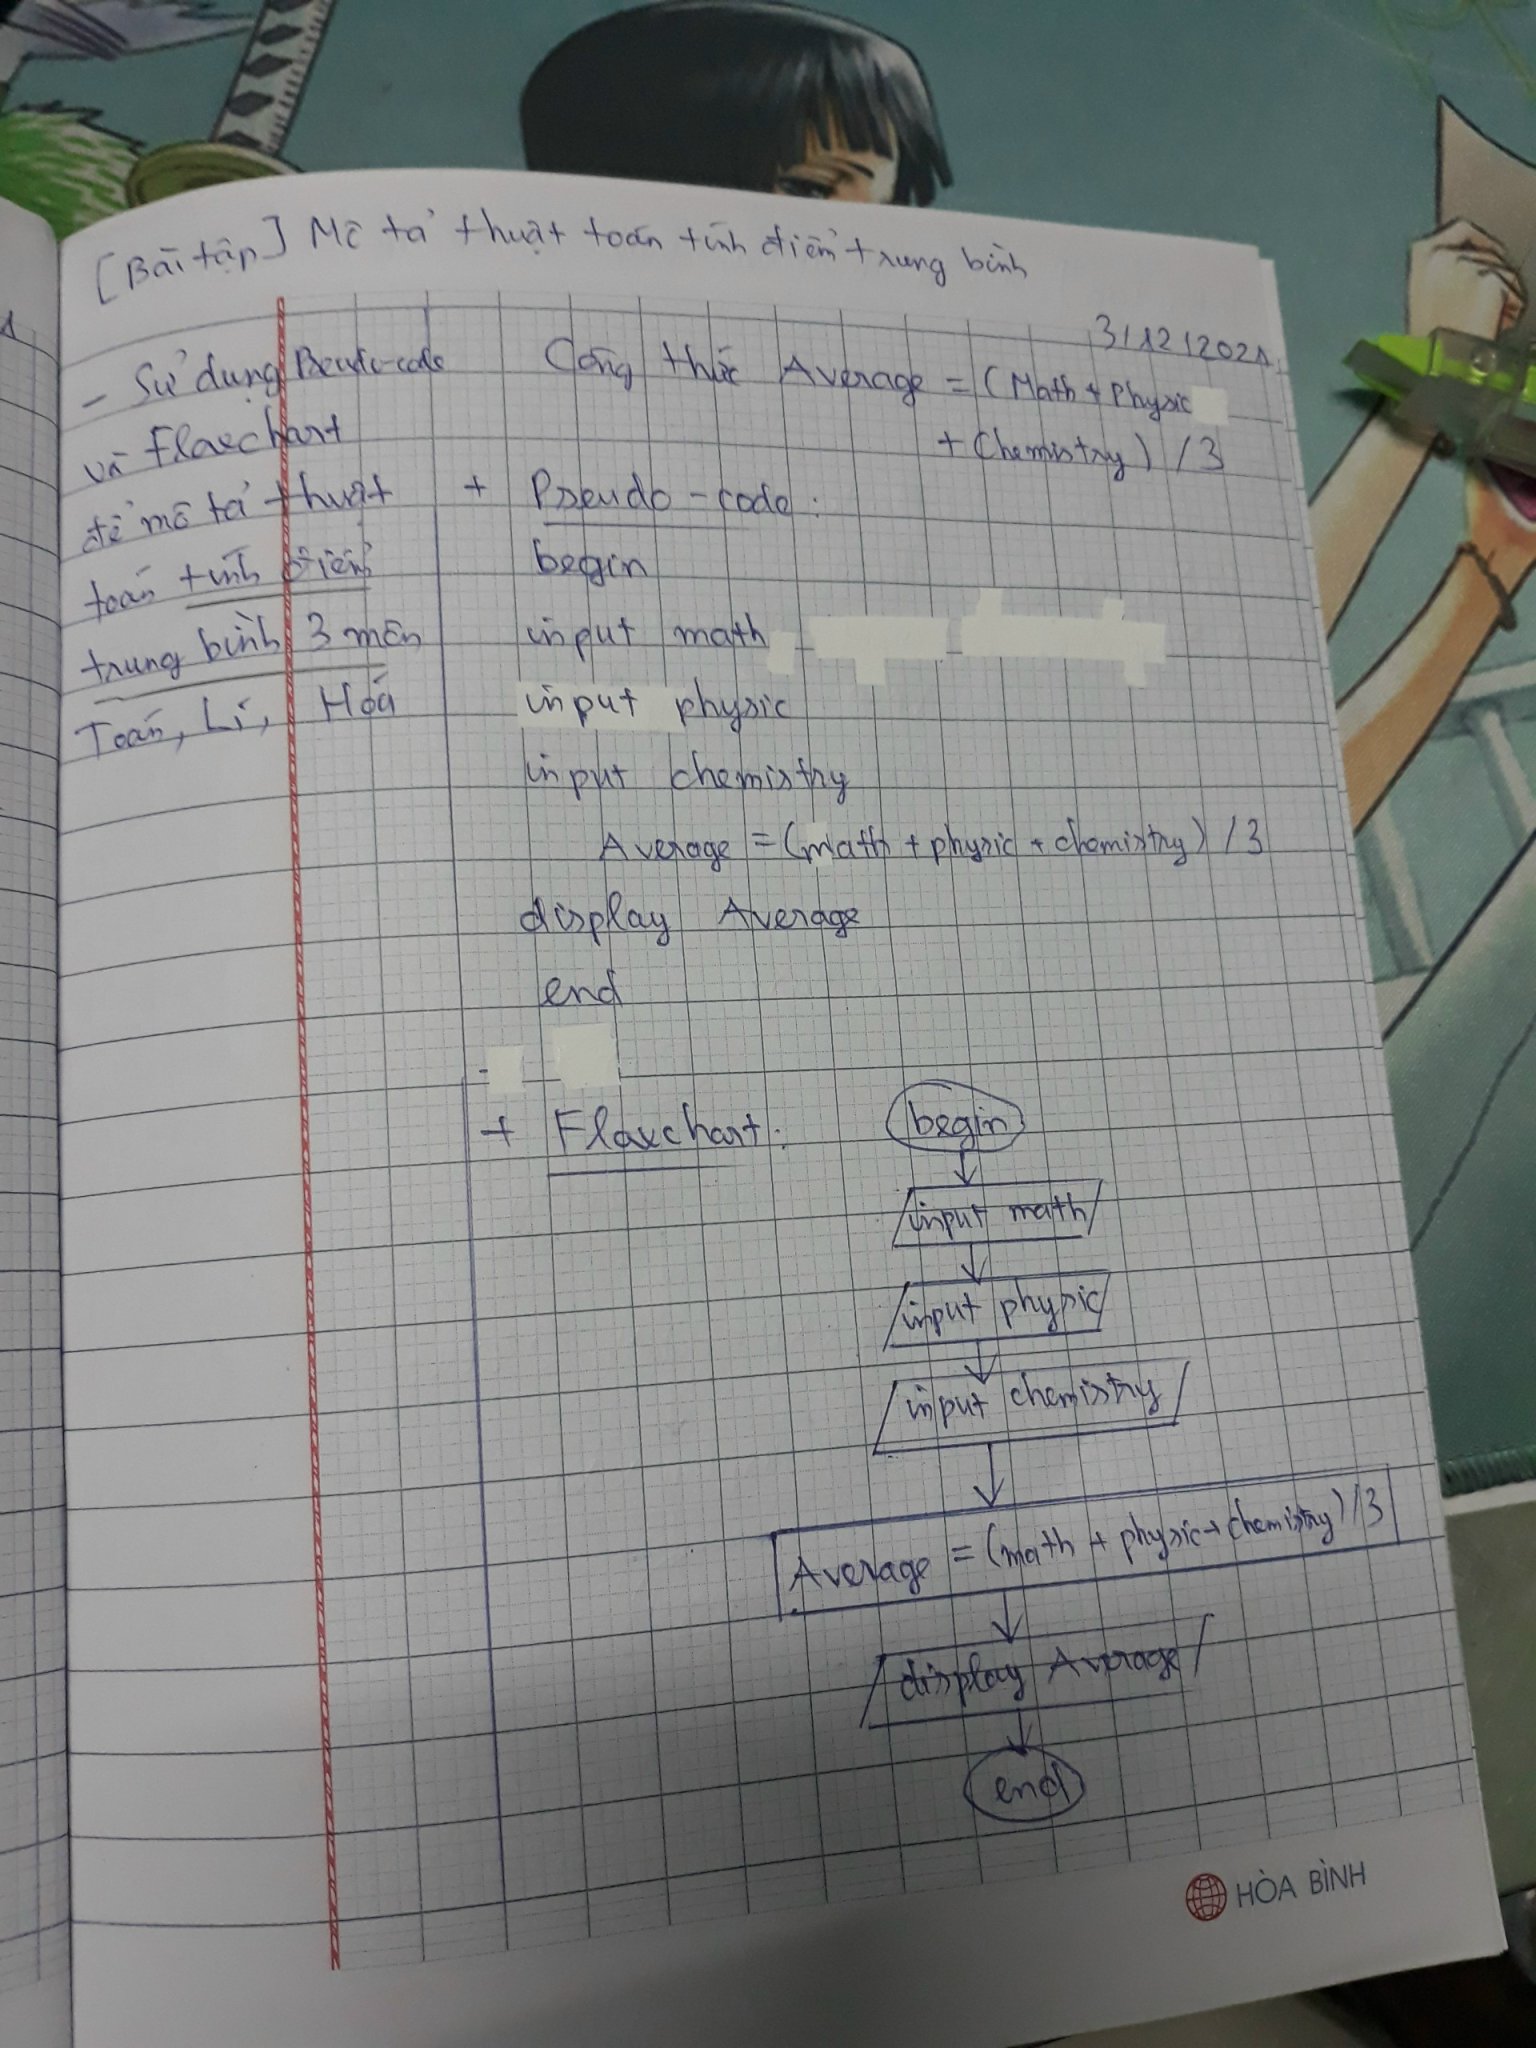 [Bài tập] Mô tả thuật toán tính điểm trung bình
3/12/2021
- Sử dụng Pseudo-code
và Flowchart
để mô tả thuật
toán tính điểm
trung bình 3 môn
Toán, Lí, Hoá
Công thức Average = (Math + Physic
+ Chemistry) / 3
+ Pseudo-code:
begin
input math
input physic
input chemistry
Average = (math + physic + chemistry) / 3
display Average
end
+ Flowchart:
begin
input math
input physic
input chemistry
Average = (math + physic + chemistry) / 3
display Average
end
HÒA BÌNH